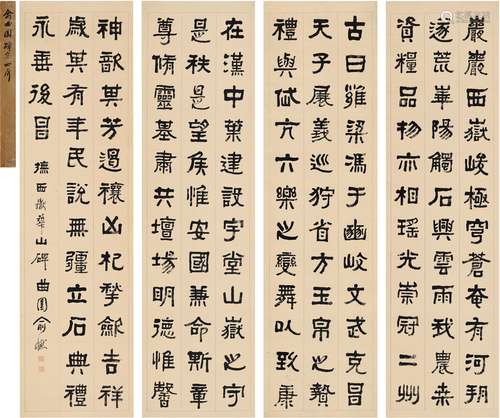 巖巖西嶽峻極穹蒼奄有河朔
遂荒華陽觸石興雲雨我農桑
資糧品物亦相瑤光崇冠二州
古曰雍梁馮于豳岐文武克昌
天子展義巡狩省方玉帛之贄
禮與岱亢六樂之變舞以致康
在漢中葉建設宇堂山嶽之守
是秩是望侯惟安國兼命斯章
尊脩靈基肅共壇場明德惟馨
神歆其芳遏禳凶札揫斂吉祥
歲其有年民說無疆立石典禮
永垂後昌 撫西嶽華山碑 曲園俞樾
俞曲園